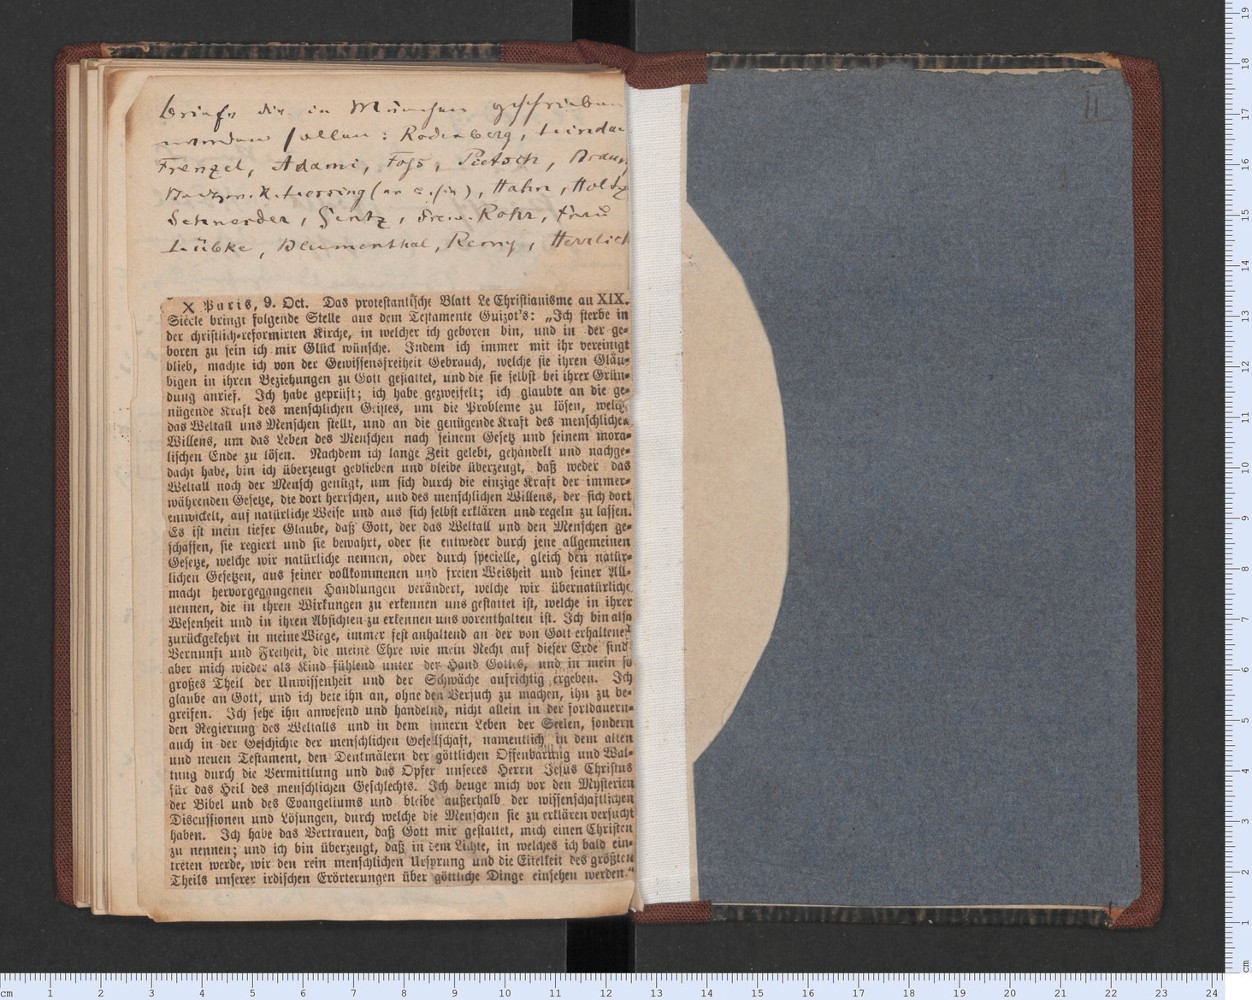 Briefe die in München geschrieben
werden sollen: Rodenberg, Lindau
Frenzel, Adami, Foss, Pietsch,
Lessing (an), Hahn, Holtz
Schneider, Gentz, Frau Rohr, Frau
Lübke, Blumenthal, Remy, Herrlich
II
X Paris, 9. Oct. Das protestantische Blatt Le Christianisme au XIX.
Siècle bringt folgende Stelle aus dem Testamente Guizot's: „Ich sterbe in
der christlich-reformirten Kirche, in welcher ich geboren bin, und in der ge-
boren zu sein ich mir Glück wünsche. Indem ich immer mit ihr vereinigt
blieb, machte ich von der Gewissensfreiheit Gebrauch, welche sie ihren Gläu-
bigen in ihren Beziehungen zu Gott gestattet, und die sie selbst bei ihrer Grün-
dung anrief. Ich habe geprüft; ich habe gezweifelt; ich glaubte an die ge-
nügende Kraft des menschlichen Geistes, um die Probleme zu lösen, welche
das Weltall uns Menschen stellt, und an die genügende Kraft des menschlichen
Willens, um das Leben des Menschen nach seinem Gesetz und seinem mora-
lischen Ende zu lösen. Nachdem ich lange Zeit gelebt, gehandelt und nachge-
dacht habe, bin ich überzeugt geblieben und bleibe überzeugt, daß weder das
Weltall noch der Mensch genügt, um sich durch die einzige Kraft der immer-
währenden Gesetze, die dort herrschen, und des menschlichen Willens, der sich dort
entwickelt, auf natürliche Weise und aus sich selbst erklären und regeln zu lassen.
Es ist mein tiefer Glaube, daß Gott, der das Weltall und den Menschen ge-
schaffen, sie regiert und sie bewahrt, oder sie entweder durch jene allgemeinen
Gesetze, welche wir natürliche nennen, oder durch specielle, gleich den natür-
lichen Gesetzen, aus seiner vollkommenen und freien Weisheit und seiner All-
macht hervorgegangenen Handlungen verändert, welche wir übernatürliche
nennen, die in ihren Wirkungen zu erkennen uns gestattet ist, welche in ihrer
Wesenheit und in ihren Absichten zu erkennen uns vorenthalten ist. Ich bin also
zurückgekehrt in meine Wiege, immer fest anhaltend an der von Gott erhaltenen
Vernunft und Freiheit, die meine Ehre wie mein Recht auf dieser Erde sind
aber mich wieder als Kind fühlend unter der Hand Gottes, und in mein so
großes Theil der Unwissenheit und der Schwäche aufrichtig ergeben. Ich
glaube an Gott, und ich bete ihn an, ohne den Versuch zu machen, ihn zu be-
greifen. Ich sehe ihn anwesend und handelnd, nicht allein in der fortdauern-
den Regierung des Weltalls und in dem innern Leben der Seelen, sondern
auch in der Geschichte der menschlichen Gesellschaft, namentlich in dem alten
und neuen Testament, den Denkmälern der göttlichen Offenbarung und Wal-
tung durch die Vermittlung und das Opfer unseres Herrn Jesus Christus
für das Heil des menschlichen Geschlechts. Ich beuge mich vor den Mysterien
der Bibel und des Evangeliums und bleibe außerhalb der wissenschaftlichen
Discussionen und Lösungen, durch welche die Menschen sie zu erklären versucht
haben. Ich habe das Vertrauen, daß Gott mir gestattet, mich einen Christen
zu nennen; und ich bin überzeugt, daß in dem Lichte, in welches ich bald ein-
treten werde, wir den rein menschlichen Ursprung und die Eitelkeit des größten
Theils unserer irdischen Erörterungen über göttliche Dinge einsehen werden."